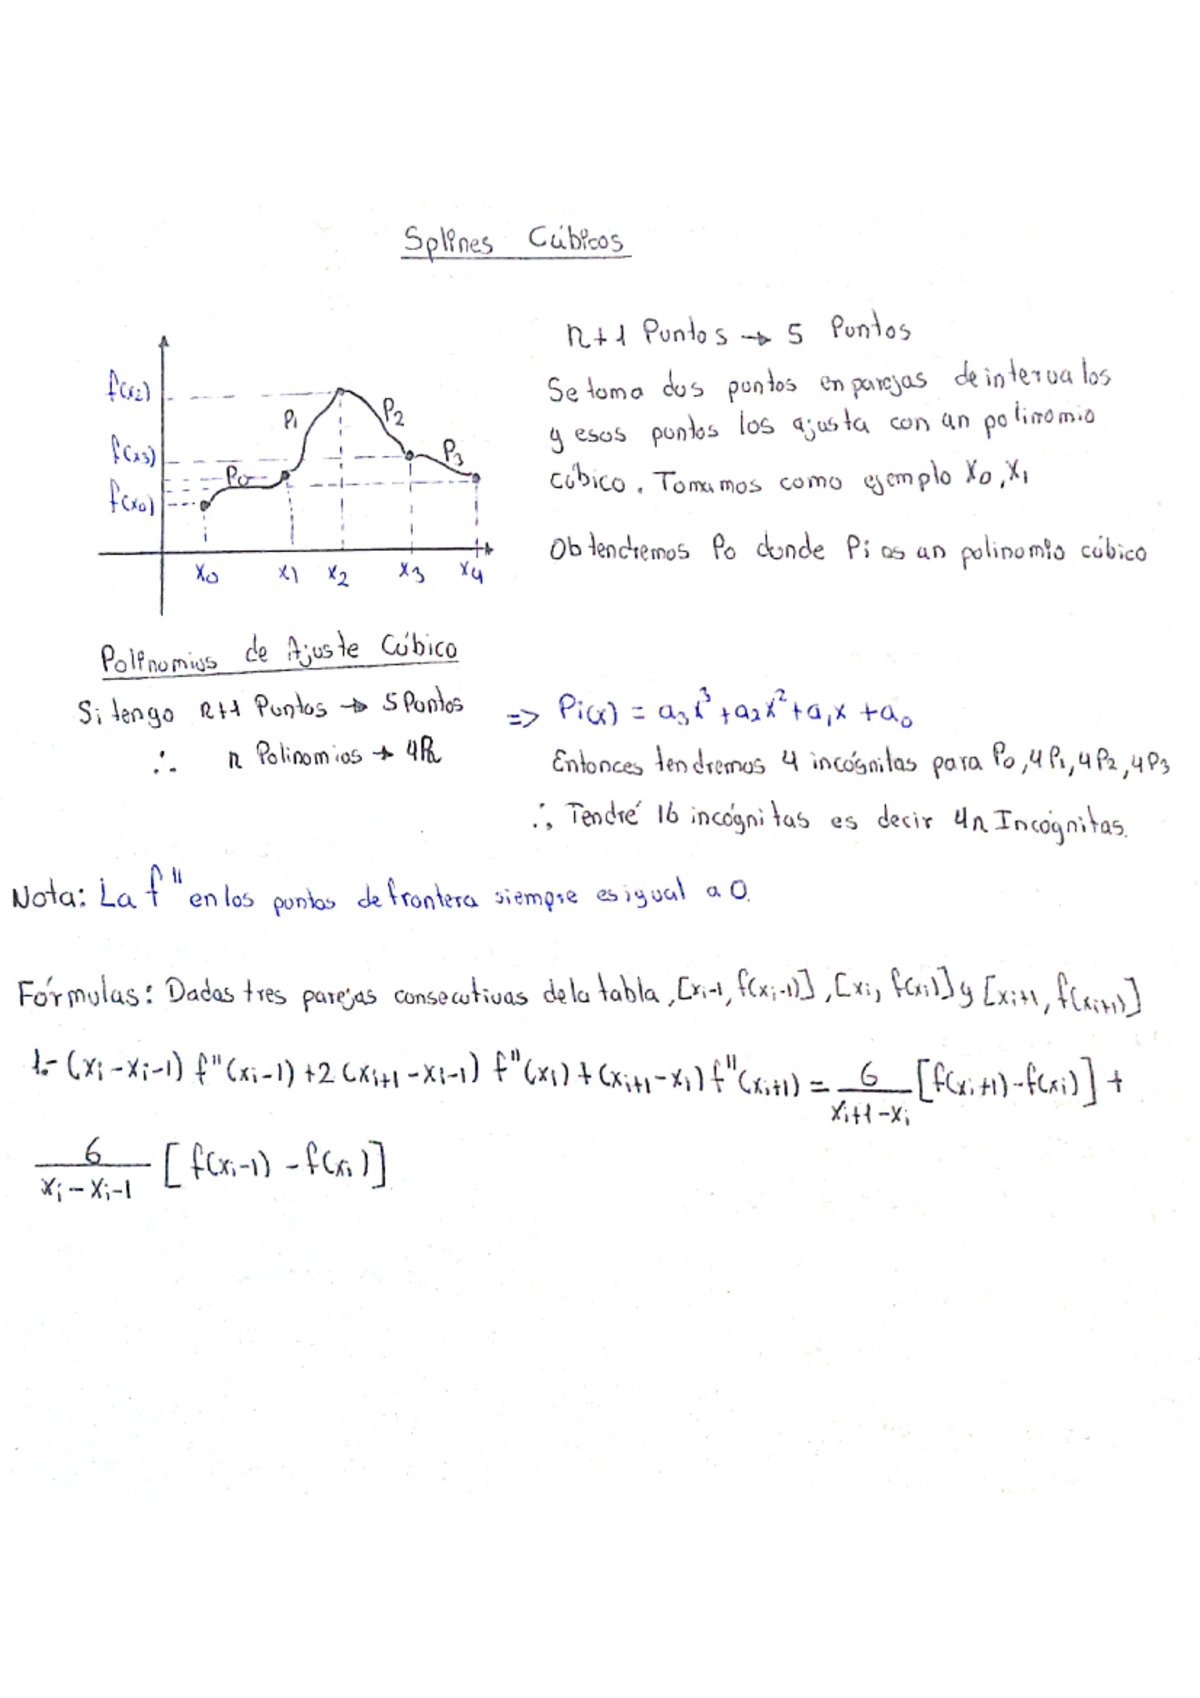 Splines Cúbicos
n+1 Puntos → 5 Puntos
Se toma dos puntos en parejas de intervalos
y esos puntos los ajusta con un polinomio
cúbico. Tomamos como ejemplo x0, x1
Obtendremos Po donde Pi es un polinomio cúbico
f(x2)
f(x3)
f(x0)
P0
P1
P2
P3
x0 x1 x2 x3 x4
Polinomios de Ajuste Cúbico
Si tengo n+1 Puntos → 5 Puntos
∴ n Polinomios → 4Pi
=> Pi(x) = a3x³+a2x²+a1x+a0
Entonces tendremos 4 incógnitas para P0, 4P1, 4P2, 4P3
∴, Tendré 16 incógnitas es decir 4n Incógnitas.
Nota: La f" en los puntos de frontera siempre es igual a 0.
Fórmulas: Dadas tres parejas consecutivas de la tabla, [xi-1, f(xi-1)], [xi, f(xi)] y [xi+1, f(xi+1)]
1.- (xi-xi-1) f"(xi-1)+2(xi+1-xi-1) f"(xi)+(xi+1-xi) f"(xi+1) = 6/(xi+1-xi) [f(xi+1)-f(xi)] +
6/(xi-xi-1) [f(xi-1)-f(xi)]